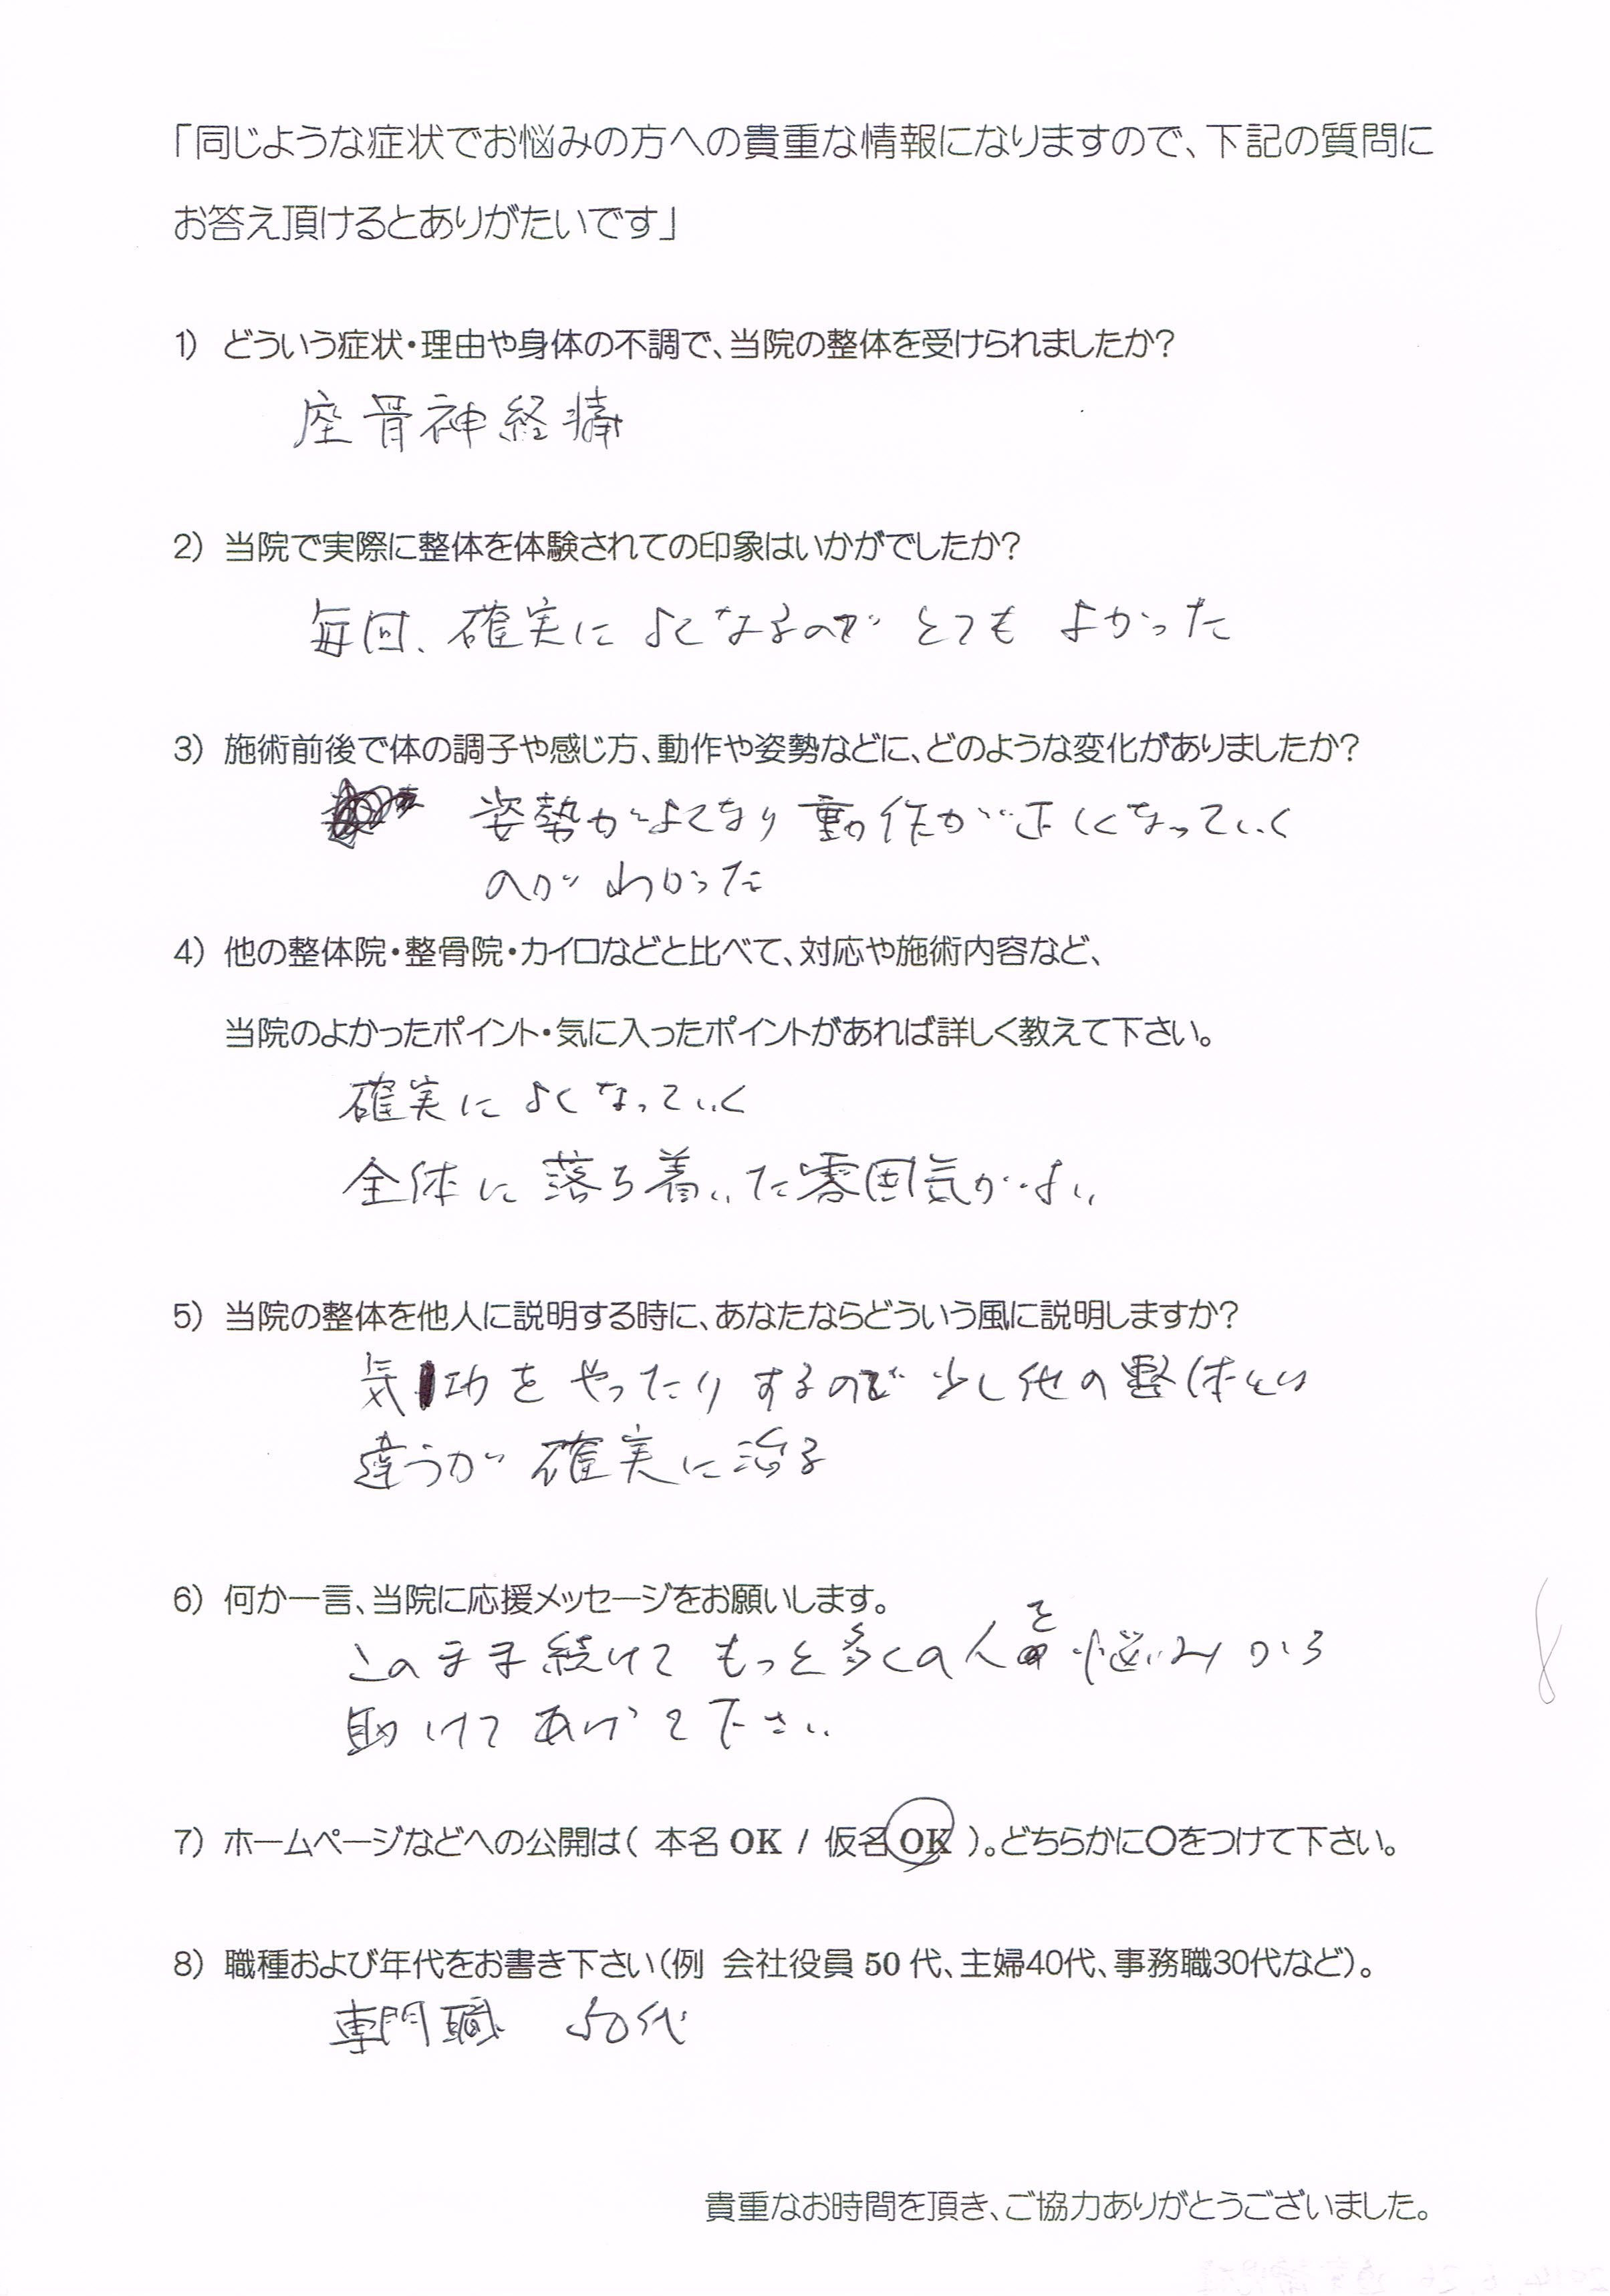 「同じような症状でお悩みの方への貴重な情報になりますので、下記の質問に
お答え頂けるとありがたいです」
1) どういう症状・理由や身体の不調で、当院の整体を受けられましたか?
座骨神経痛
2) 当院で実際に整体を体験されての印象はいかがでしたか?
毎回、確実によくなるので とても よかった
3) 施術前後で体の調子や感じ方、動作や姿勢などに、どのような変化がありましたか?
姿勢がよくなり動作が正しくなっていく
のが わかった
4) 他の整体院・整骨院・カイロなどと比べて、対応や施術内容など、
当院のよかったポイント・気に入ったポイントがあれば詳しく教えて下さい。
確実に よくなっていく
全体に 落ち着いた雰囲気がよい
5) 当院の整体を他人に説明する時に、あなたならどういう風に説明しますか?
気功を やったり するので 少し他の整体とは
違うが 確実に治る
6) 何か一言、当院に応援メッセージをお願いします。
このまま続けて もっと多くの人を悩みから
助けて あげて下さい
7) ホームページなどへの公開は( 本名 OK / 仮名 OK )。どちらかに○をつけて下さい。
8) 職種および年代をお書き下さい(例 会社役員 50 代、主婦40代、事務職30代など)。
専門職 50代
貴重なお時間を頂き、ご協力ありがとうございました。